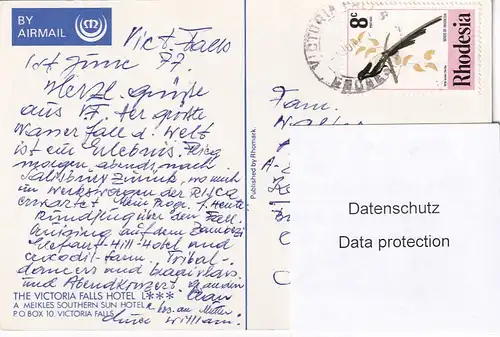 BY
AIRMAIL
Vict. Falls
1st June 77.
Herzl. Grüße
aus V.F. der größte
Wasserfall d. Welt
ist ein Erlebnis. Flieg
morgen abends nach
Salisbury zurück, wo mich
ein Werkswagen der
erwartet. Mein Progr. f. Heute
Rundflug über den Fall
auf dem Zambezi
Elefant-Hill-Hotel und
Crocodil-farm. Tribal-
dancers und
und Abendkonzert. an den
THE VICTORIA FALLS HOTEL L***
A MEIKLES SOUTHERN SUN HOTEL
bes. an Mutter
P O BOX 10, VICTORIA FALLS
William.
Published by Rhomark.
VICTORIA FALLS
8c
Rhodesia
Fam.
Walter
Datenschutz
Data protection